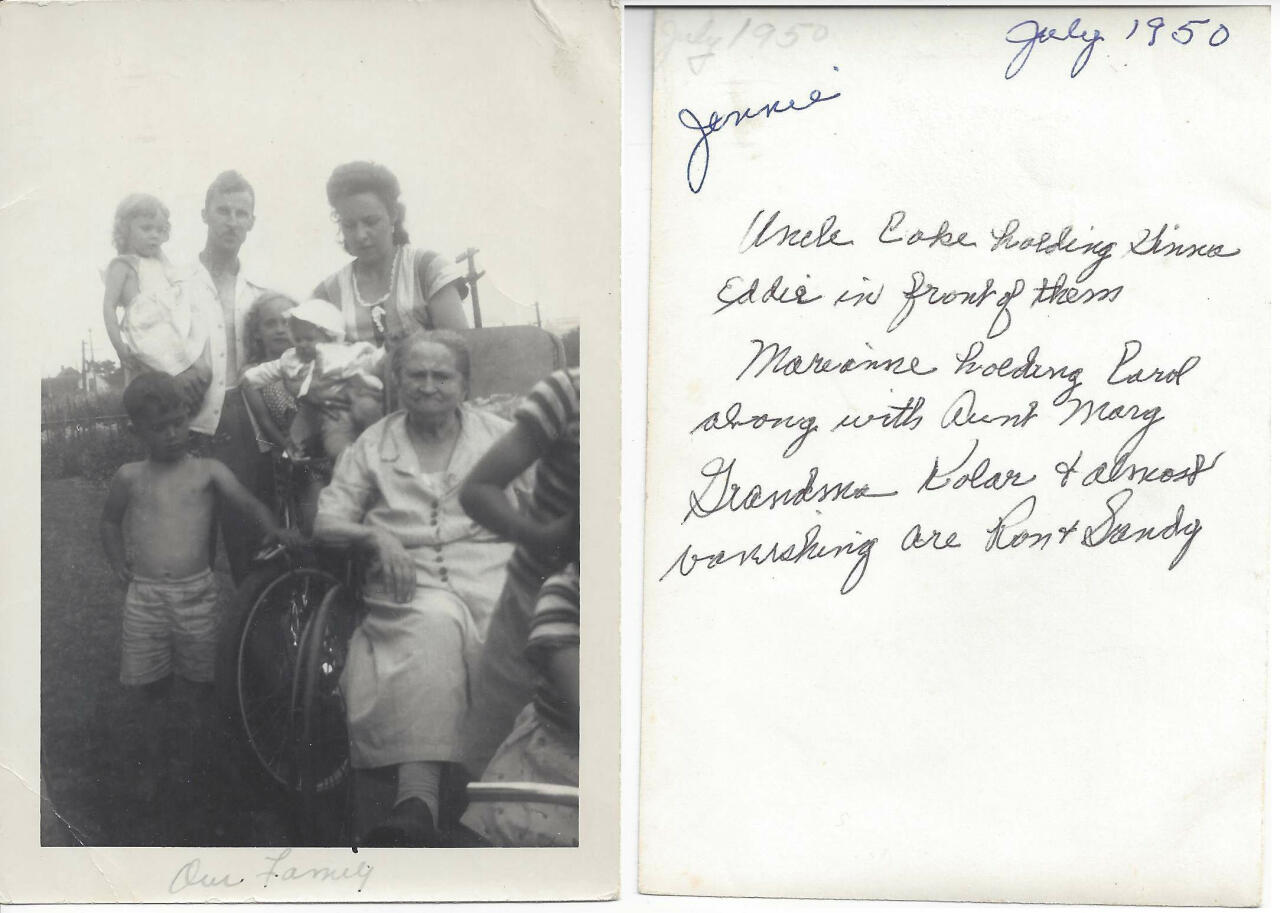 Our Family
July 1950
July 1950
Jennie
Uncle Coke holding Ginna
Eddie in front of them
Marianne holding Carol
along with Aunt Mary
Grandma Kolar & almost
vanishing are Ron & Sandy